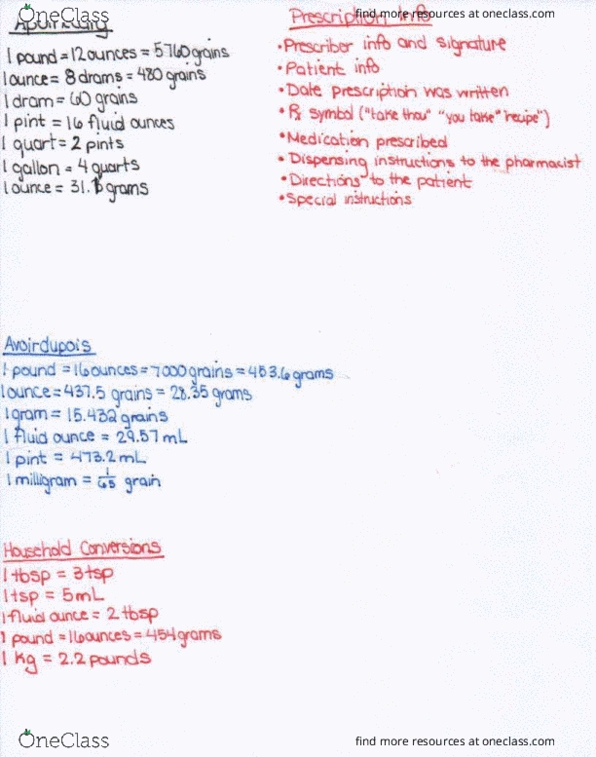 OneClass
find more resources at oneclass.com
Apothecary
1 pound = 12 ounces = 5760 grains
1 ounce = 8 drams = 480 grains
1 dram = 60 grains
1 pint = 16 fluid ounces
1 quart = 2 pints
1 gallon = 4 quarts
1 ounce = 31.1 grams
Prescription Info
• Prescriber info and signature
• Patient info
• Date prescription was written
• ℞ symbol ("take thou" "you take" "recipe")
• Medication prescribed
• Dispensing instructions to the pharmacist
• Directions to the patient
• Special instructions
Avoirdupois
1 pound = 16 ounces = 7000 grains = 453.6 grams
1 ounce = 437.5 grains = 28.35 grams
1 gram = 15.432 grains
1 fluid ounce = 29.57 mL
1 pint = 473.2 mL
1 milligram = 1/65 grain
Household Conversions
1 tbsp = 3 tsp
1 tsp = 5 mL
1 fluid ounce = 2 tbsp
1 pound = 16 ounces = 454 grams
1 kg = 2.2 pounds
OneClass
find more resources at oneclass.com